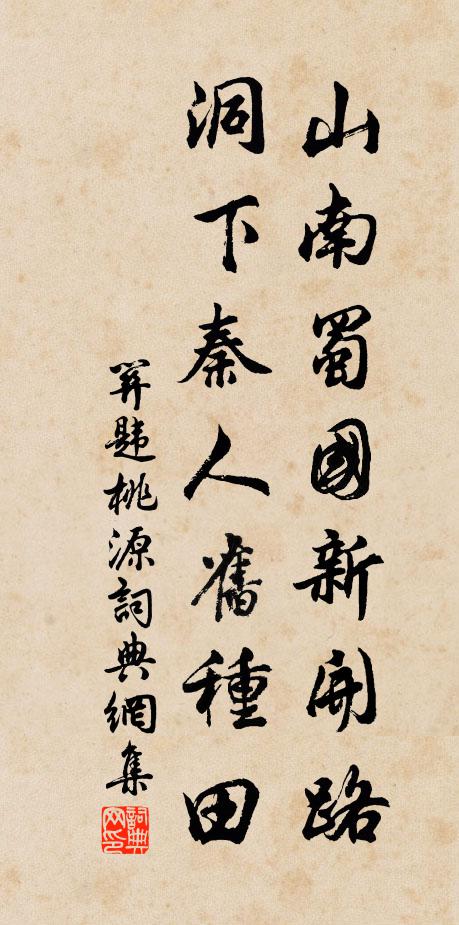 山南蜀國新開路
洞下秦人舊種田
題桃源詞典網集
詞典网印